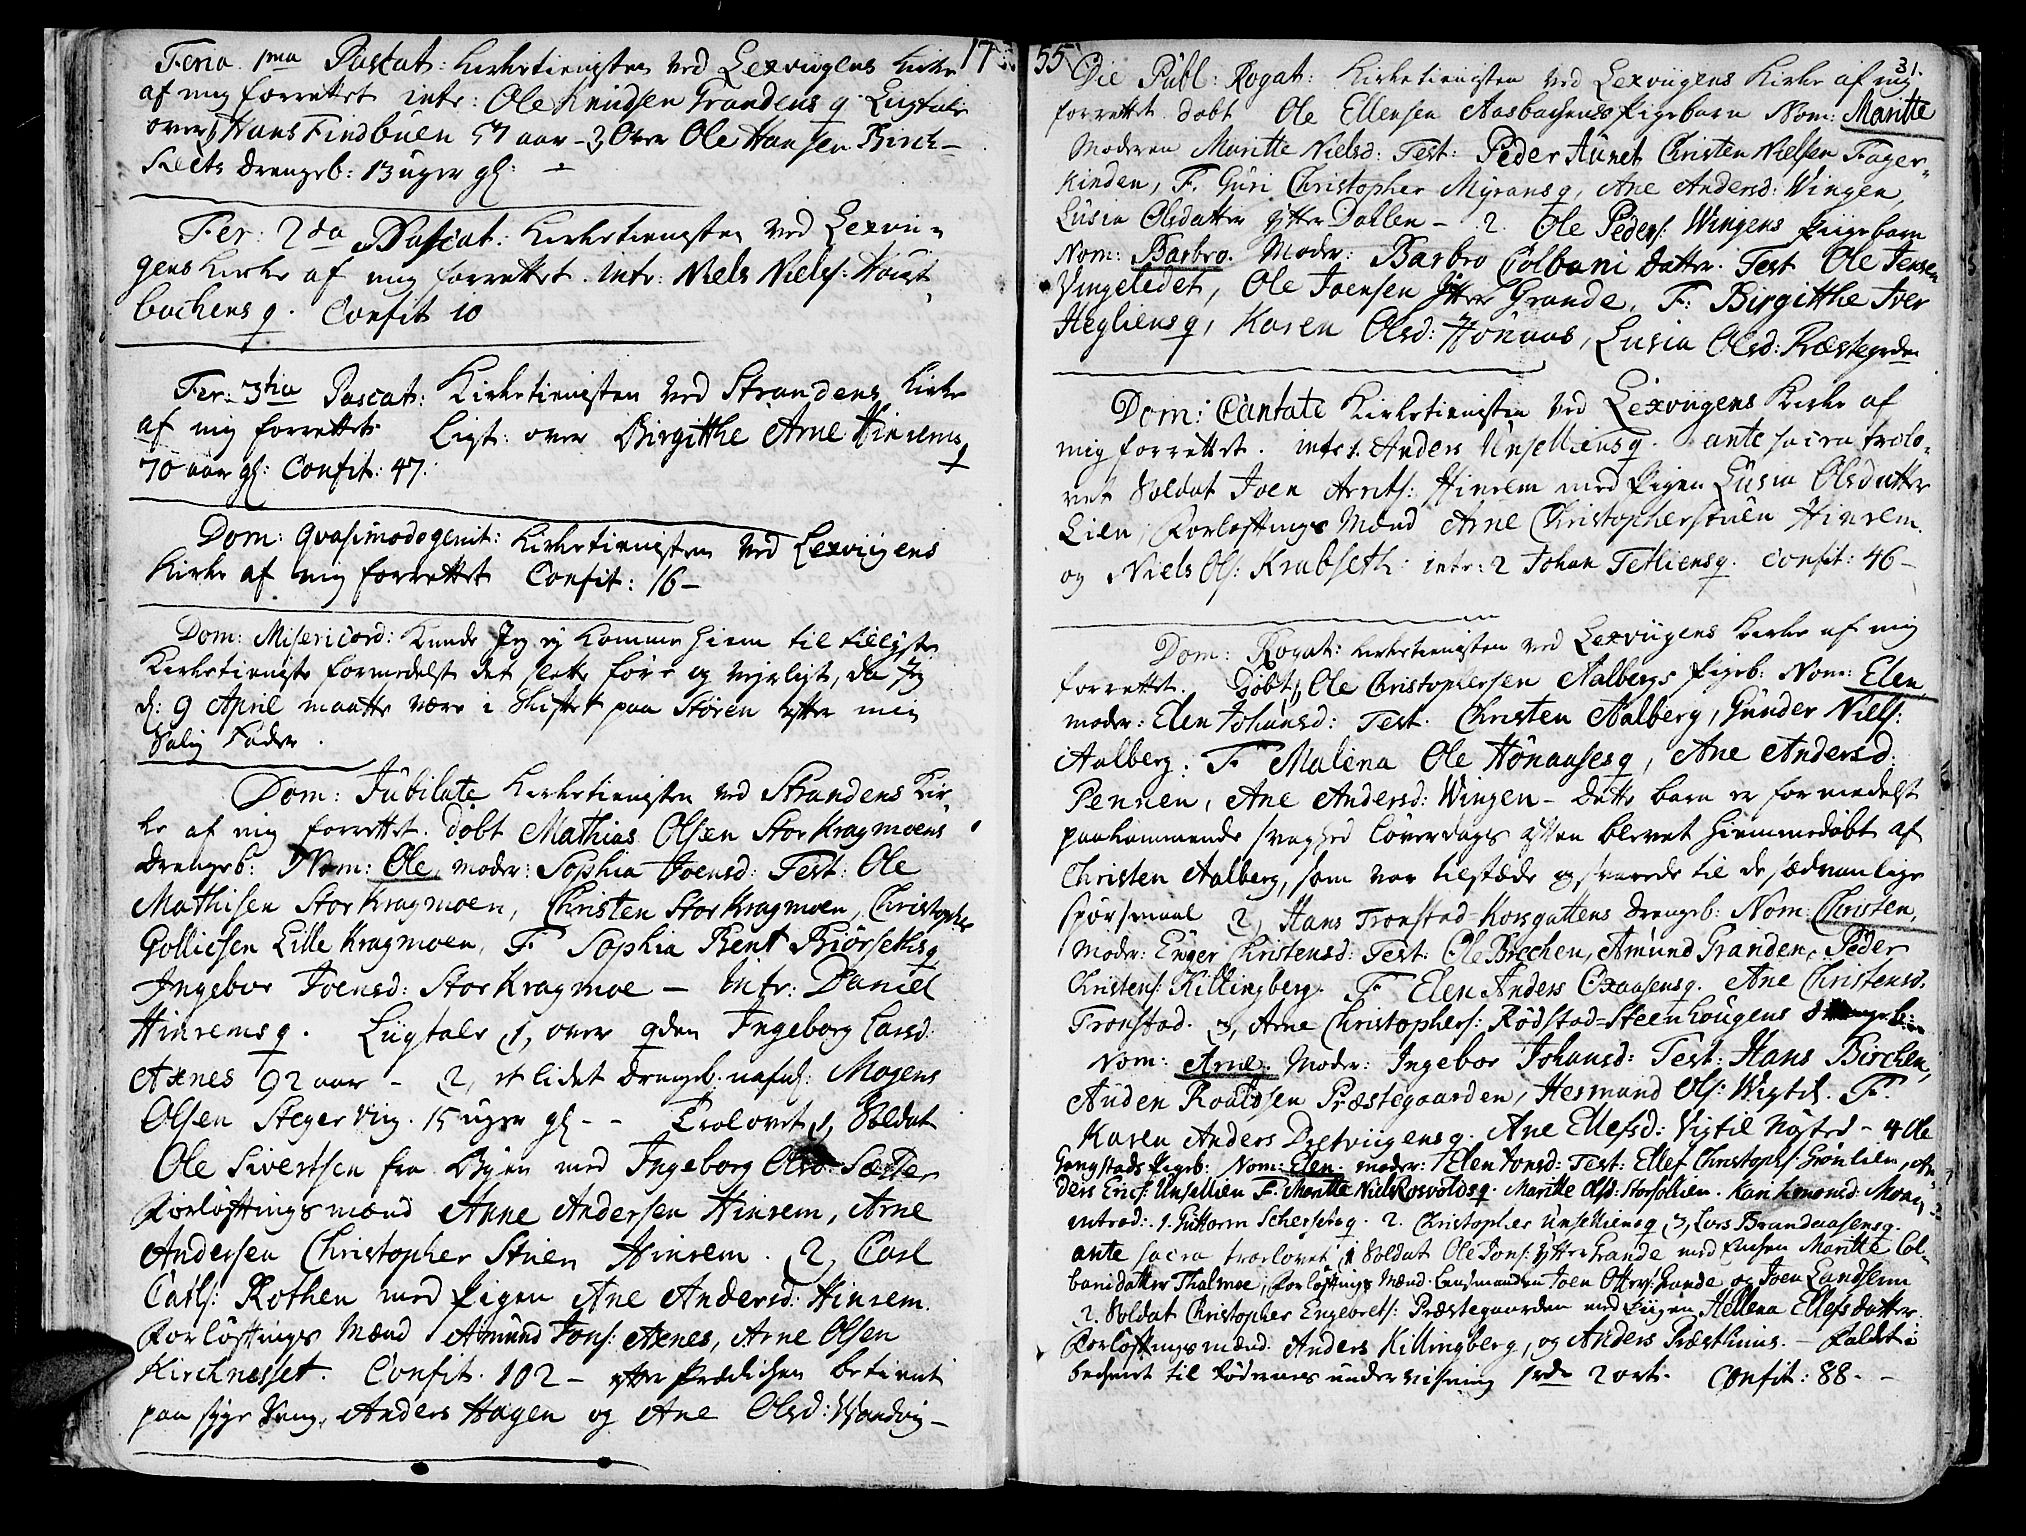 17
Feria 1ma Pascat: Kirketienisten ved Lexvügens Kirke
af mig forrettet intr: Ole Knudsen Grandens q. Lügtale
over 1, Hans Findbüen 57 aar - 2, Over Ole Hansen Birch-
drengeb: 13 uger gl:
Fer: 2da Pascat: Kirketienisten ved Lexvü-
gens Kirke af mig forrettet. intr: Niels Niels: Houst
bachens q. Confit 10
Fer: 3tia Pascat: Kirketienisten ved Strandens Kirke
af mig forrettet Ligt: over Birgitthe Arne Hinrems
70 aar gl: Confit: 47.
Dom: Qvasimodogenit: Kirketienisten ved Lexvügens
Kirke af mig forrettet Confit: 16 -
Dom: Misericord: Kunde Jeg ej komme hiem til tillyste
Kirketieniste formedelst det slette føre og vejrligt, da Jeg
d: 9 April maatte være i Skiftet paa Støren efter min
Salig Fader.
Dom: Jübilate Kirketienisten ved Strandens Kir-
ke af mig forrettet. døbt Mathias Olsen StorKragmoens
drengeb: Nom: Ole, moder: Sophia Joensd: Test: Ole
Mathisen StorKragmoen, Christen StorKragmoen, Christopher
Golliesen Lille Kragmoen, F Sophia Bent Biörseths q,
Ingebor Joensd: StorKragmoe - Intr: Daniel
Hinrems q. Lügtale 1, over qden Ingeborg Larsd:
Axnes 92 aar - 2, et lidet drengeb. nafnl: Mogens
Olsen Steger Vüg. 15 uger gl - - Trolovet 1, Soldat
Ole Sivertsen fra Byen med Ingeborg Olsd: Sætter
Forløftningsmænd Anne Andersen Hinrem, Arne
Andersen Christopher Stüen Hinrem. 2, Carl
Carls: Rothen med Pigen Ane Andersd: Hinrem.
Forløftnings Mænd Amünd Jons: Axnes, Arne Olsen
Kirchnesset. Confit. 102 - efter Prædichen betient
paa syge Seng, Anders Hagen og Ane Olsd: Wandvig -
55
31.
Die Publ: Rogat: Kirketienisten ved Lexvügens Kirke af mig
forrettet. døbt Ole Ellensen Aasbachens Pigebarn Nom: Maritte
Moderen Maritte Nielsd: Test: Peder Auset Christen Nielsen Fager-
kinden, F. Guri Christopher Myrans q, Ane Andersd: Wingen,
Lüsia Olsdatter ytter Dahlen - 2. Ole Peders: Wingens Pigebarn
Nom: Barbro. Moder: Barbro Colbani datter. Test Ole Jensen
Vingeledet, Ole Joensen ytter Grande, F: Birgitthe Iver
Hegliens q, Karen Olsd: Hönaas, Lusia Olsd: Præstegrden
Dom: Cantate Kirketienisten ved Lexvügens Kirke af
mig forrettet. intr. Anders Unsettliens q. ante sacra trolo-
vet Soldat Joen Arnts: Hinrem med Pigen Lüsia Olsdatter
Lien, Forløftnings Mænd Arne Christophersönen Hinrem.
og Niels Ols: Krabseth. intr: 2 Johan Tetliens q. Confit: 46 -
Dom: Rogat: Kirketienisten ved Lexvügens Kirke af mig
forrettet. Døbt 1, Ole Christophersen Aalbergs Pigeb: Nom: Elen,
moder: Elen Johansd: Test. Christen Aalberg, Günder Niels:
Aalberg: F Malena Ole Hönaases q, Ane Andersd:
Pennen, Ane Andersd: Wingen - dette barn er formedelst
paakommende svaghed løverdags aften blevet hiemmedøbt af
Christen Aalberg, som var tilstæde og svarede til de sædvanlige
spørsmaal 2, Hans Tronstad-Korsgattens drengeb: Nom: Christen,
Moder: Enger Christensd: Test: Ole Birchen, Amünd Granden, Peder
Christens: Killingberg. F Elen Anders Oxaasens q. Ane Christensd:
Tronstad. 3, Arne Christophers: Rödstad-Steenhougens drengeb:
Nom: Arne. Moder: Ingebor Johansd: Test: Hans Birchen,
Auden Roaldsen Præstegaarden, Hermand Ols: Wigtil. F.
Karen Anders Dretvügens q. Ane Ellefsd: Vigtil Nøsted - 4 Ole
Gangstads Pigeb: Nom: Elen. moder: Elen Jonsd: Test: Ellef Christophs: Grönlien, An-
ders Erics: Unsettlien F. Maritte Niels Rosvolds q. Maritte Olsd: Storsollien. Kari Moan,
introd: 1. Guttorm Scherseths q. 2. Christopher Unsettliens q 3, Lars Brandaasens q.
ante sacra trolovet 1, Soldat Ole Jons: ytter Grande med Enchen Maritte Col-
banidatter Thalmoe, Forløftnings Mænd Lensmanden Joen Otters: Grande og Joen Landsem
2. Soldat Christopher Engebrets: Præstegaarden med Pigen Hellena Ellefsdatter
Forløftningsmænd Anders Killingberg, og Anders Præsthuus. - Faldt i
til Fødernes underviisning 1rd 2 ort. Confit: 88 - -